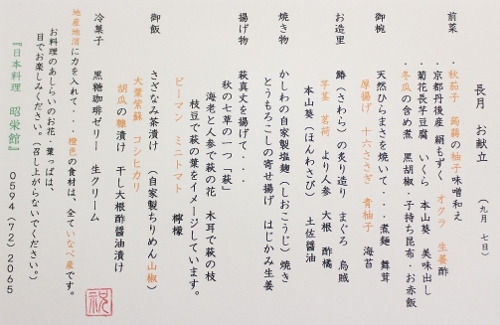 長月 お献立 (九月 七日)
前菜
・秋茄子 蒟蒻の柚子味噌和え
・京都丹後産 絹もずく オクラ 生姜酢
・菊花長芋豆腐 いくら 本山葵 美味出し
・冬瓜の含め煮 黒胡椒・子持ち昆布・お赤飯
御椀
天然ひらまさを焼いて・・・煮麺 舞茸
厚揚げ 十六ささぎ 青柚子 海苔
お造里
鰆(さわら)の炙り造り まぐろ 烏賊
芋茎 茗荷 より人参 大根 酢橘
本山葵(ほんわさび) 土佐醤油
焼き物
かしわの自家製塩麹(しおこうじ)焼き
とうもろこしの寄せ揚げ はじかみ生姜
揚げ物
萩真丈を揚げて・・・
秋の七草の一つ「萩」
海老と人参で萩の花 木耳で萩の枝
枝豆で萩の葉をイメージしています。
ピーマン ミニトマト 檸檬
御飯
さざなみ茶漬け (自家製ちりめん山椒)
大葉紫蘇 コシヒカリ
胡瓜の糠漬け 干し大根酢醤油漬け
冷菓子
黒糖珈琲ゼリー 生クリーム
地産地消に力を入れて・・・橙色の食材は、全ていなべ産です。
お料理のあしらいのお花、葉っぱは、
目でお楽しみください。(召し上がらないでください。)
『日本料理 昭栄館』 0594(72)2065
祝